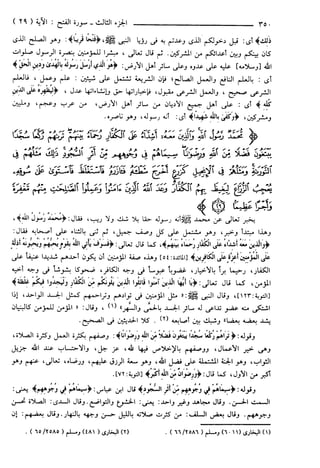 ٣٥٠ الجزء الثالث - سورة الفتح: الآية (٢٩)
ذلك﴾ أي: قبل دخولكم الذي وعدتم به في رؤيا النبي ﷺ، ﴿فَتْحًا قَرِيبًا﴾: وهو الصلح الذي
كان بينكم وبين أعدائكم من المشركين. ثم قال تعالى، مبشرا للمؤمنين بنصرة الرسول صلوات
الله [وسلامه] عليه على عدوه وعلى سائر أهل الأرض: ﴿هُوَ الَّذِي أَرْسَلَ رَسُولَهُ بِالْهُدَى وَدِينِ الْحَقِّ﴾
أي: بالعلم النافع والعمل الصالح؛ فإن الشريعة تشتمل على شيئين: علم وعمل، فالعلم
الشرعي صحيح، والعمل الشرعي مقبول، فإخباراتها حق وإنشاءاتها عدل، ﴿لِيُظْهِرَهُ عَلَى الدِّينِ
كُلِّهِ﴾ أي: على أهل جميع الأديان من سائر أهل الأرض، من عرب وعجم، ومليين
ومشركين، ﴿وَكَفَى بِاللَّهِ شَهِيدًا﴾ أي: أنه رسوله، وهو ناصره.
﴿مُحَمَّدٌ رَسُولُ اللَّهِ وَالَّذِينَ مَعَهُ أَشِدَّاءُ عَلَى الْكُفَّارِ رُحَمَاءُ بَيْنَهُمْ تَرَاهُمْ رُكَّعًا سُجَّدًا
يَبْتَغُونَ فَضْلًا مِنَ اللَّهِ وَرِضْوَانًا سِيمَاهُمْ فِي وُجُوهِهِمْ مِنْ أَثَرِ السُّجُودِ ذَلِكَ مَثَلُهُمْ فِي
التَّوْرَاةِ وَمَثَلُهُمْ فِي الْإِنْجِيلِ كَزَرْعٍ أَخْرَجَ شَطْأَهُ فَآزَرَهُ فَاسْتَغْلَظَ فَاسْتَوَى عَلَى سُوقِهِ
يُعْجِبُ الزُّرَّاعَ لِيَغِيظَ بِهِمُ الْكُفَّارَ وَعَدَ اللَّهُ الَّذِينَ آمَنُوا وَعَمِلُوا الصَّالِحَاتِ مِنْهُمْ مَغْفِرَةً
وَأَجْرًا عَظِيمًا (٢٩)﴾
يخبر تعالى عن محمد ﷺ أنه رسوله حقا بلا شك ولا ريب، فقال: ﴿مُحَمَّدٌ رَسُولُ اللَّهِ﴾،
وهذا مبتدأ وخبر، وهو مشتمل على كل وصف جميل، ثم ثنى بالثناء على أصحابه فقال:
﴿وَالَّذِينَ مَعَهُ أَشِدَّاءُ عَلَى الْكُفَّارِ رُحَمَاءُ بَيْنَهُمْ﴾، كما قال تعالى: ﴿فَسَوْفَ يَأْتِي اللَّهُ بِقَوْمٍ يُحِبُّهُمْ وَيُحِبُّونَهُ أَذِلَّةٍ
عَلَى الْمُؤْمِنِينَ أَعِزَّةٍ عَلَى الْكَافِرِينَ﴾ [المائدة:٥٤] وهذه صفة المؤمنين أن يكون أحدهم شديدا عنيفا على
الكفار، رحيما برا بالأخيار، غضوبا عبوسا في وجه الكافر، ضحوكا بشوشا في وجه أخيه
المؤمن، كما قال تعالى: ﴿يَا أَيُّهَا الَّذِينَ آمَنُوا قَاتِلُوا الَّذِينَ يَلُونَكُمْ مِنَ الْكُفَّارِ وَلْيَجِدُوا فِيكُمْ غِلْظَةً﴾
[التوبة:١٢٣]، وقال النبي ﷺ: مثل المؤمنين في توادهم وتراحمهم كمثل الجسد الواحد، إذا
اشتكى منه عضو تداعى له سائر الجسد بالحمى والسَّهر» (١)، وقال: « المؤمن للمؤمن كالبنيان
يشد بعضه بعضا» وشبك بين أصابعه (٢). كلا الحديثين في الصحيح.
وقوله: ﴿تَرَاهُمْ رُكَّعًا سُجَّدًا يَبْتَغُونَ فَضْلًا مِنَ اللَّهِ وَرِضْوَانًا﴾: وصفهم بكثرة العمل وكثرة الصلاة،
وهي خير الأعمال، ووصفهم بالإخلاص فيها لله، عز جل، والاحتساب عند الله جزيل
الثواب، وهو الجنة المشتملة على فضل الله، وهو سعة الرزق عليهم، ورضاه، تعالى، عنهم وهو
أكبر من الأول، كما قال: ﴿وَرِضْوَانٌ مِنَ اللَّهِ أَكْبَرُ﴾ [التوبة:٧٢].
وقوله: ﴿سِيمَاهُمْ فِي وُجُوهِهِمْ مِنْ أَثَرِ السُّجُودِ﴾ قال ابن عباس: ﴿سِيمَاهُمْ فِي وُجُوهِهِمْ﴾ يعني:
السمت الحسن. وقال مجاهد وغير واحد: يعني: الخشوع والتواضع. وقال السدي: الصلاة تحسن
وجوههم. وقال بعض السلف: من كثرت صلاته بالليل حسن وجهه بالنهار. وقال بعضهم: إن
(١) البخاري (٦٠١١) ومسلم (٦٦/٢٥٨٦). (٢) البخاري (٤٨١) ومسلم (٦٥/٢٥٨٥).